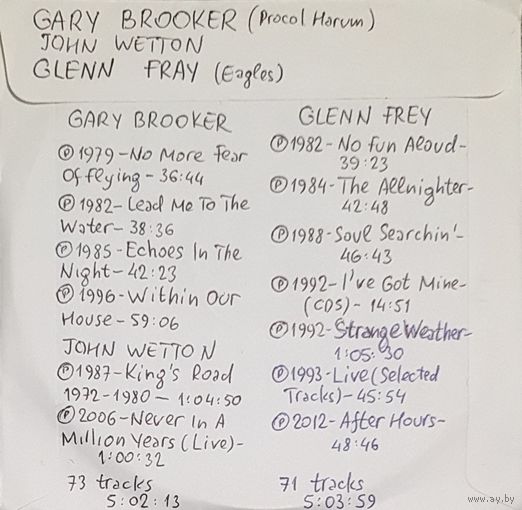 GARY BROOKER (Procol Harum)
JOHN WETTON
GLENN FRAY (Eagles)
GARY BROOKER
Ⓟ 1979-No More Fear
Of flying - 36:44
Ⓟ 1982-Lead Me To The
Water- 38:36
Ⓟ 1985-Echoes In The
Night- 42:23
Ⓟ 1996-Within Our
House- 59:06
JOHN WETTON
Ⓟ 1987-King's Road
1972-1980 - 1:04:50
Ⓟ 2006-Never In A
Million Years (Live)-
1:00:32
73 tracks
5:02:13
GLENN FREY
Ⓟ 1982-No Fun Aloud-
39:23
Ⓟ 1984-The Allnighter-
42:48
Ⓟ 1988-Soul Searchin'-
46:43
Ⓟ 1992-I've Got Mine-
(CDS)- 14:51
Ⓟ 1992-Strange Weather-
1:05:30
Ⓟ 1993-Live (Selected
Tracks)- 45:54
Ⓟ 2012-After Hours-
48:46
71 tracks
5:03:59
www.ay.by